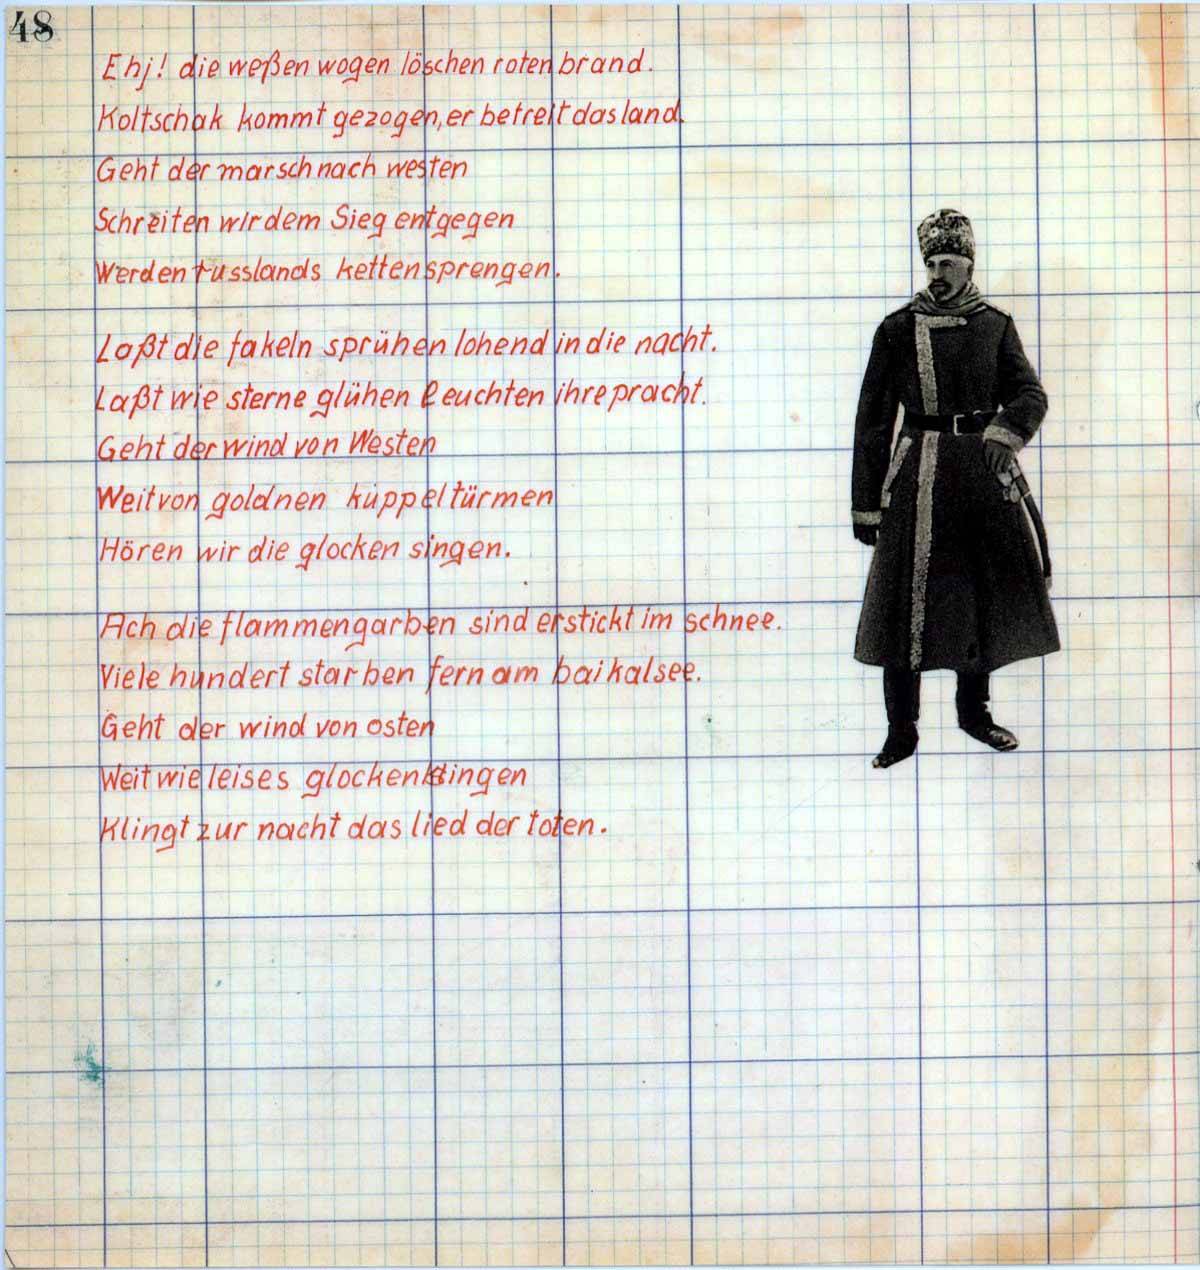 48
Ehj! die weßen wogen löschen roten brand.
Koltschak kommt gezogen, er betreit das land.
Geht der marsch nach westen
Schreiten wir dem Sieg entgegen
Werden russlands ketten sprengen.
Laßt die fakeln sprühen lohend in die nacht.
Laßt wie sterne glühen leuchten ihre pracht.
Geht der wind von Westen
Weit von goldnen kuppeltürmen
Hören wir die glocken singen.
Ach die flammengarben sind erstickt im schnee.
Viele hundert starben fern am baikalsee.
Geht der wind von osten
Weit wie leises glockenklingen
Klingt zur nacht das lied der toten.